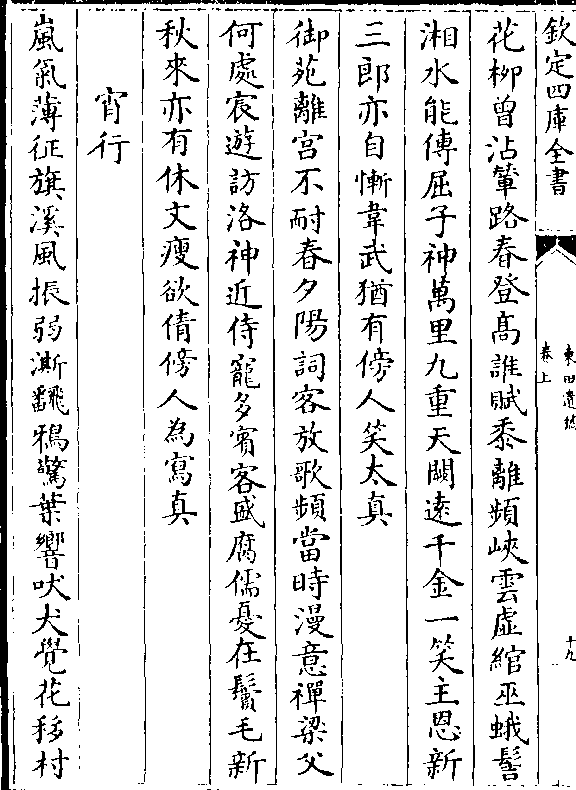 欽定四庫全書
東田遺稿
卷上
十九
花柳曾沾輦路春登髙誰賦黍離頻峽雲虚綰巫蛾髻
湘水能傳屈子神萬里九重天闕逺千金一笑主恩新
三郎亦自慚韋武猶有傍人笑太真
御苑離宫不耐春夕陽詞客放歌頻當時漫意禪梁父
何處宸遊訪洛神近侍寵多賓客盛腐儒憂在鬢毛新
秋來亦有休文瘦欲倩傍人為寫真
宵行
嵐氣薄征旗溪風振弱澌飜鴉驚葉響吠犬覺花移村